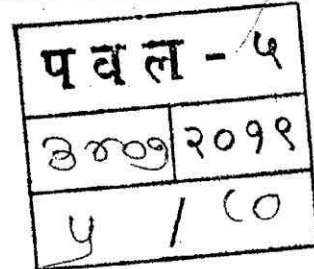 पवल - ५
३४०७ २०१९
५ / ८०